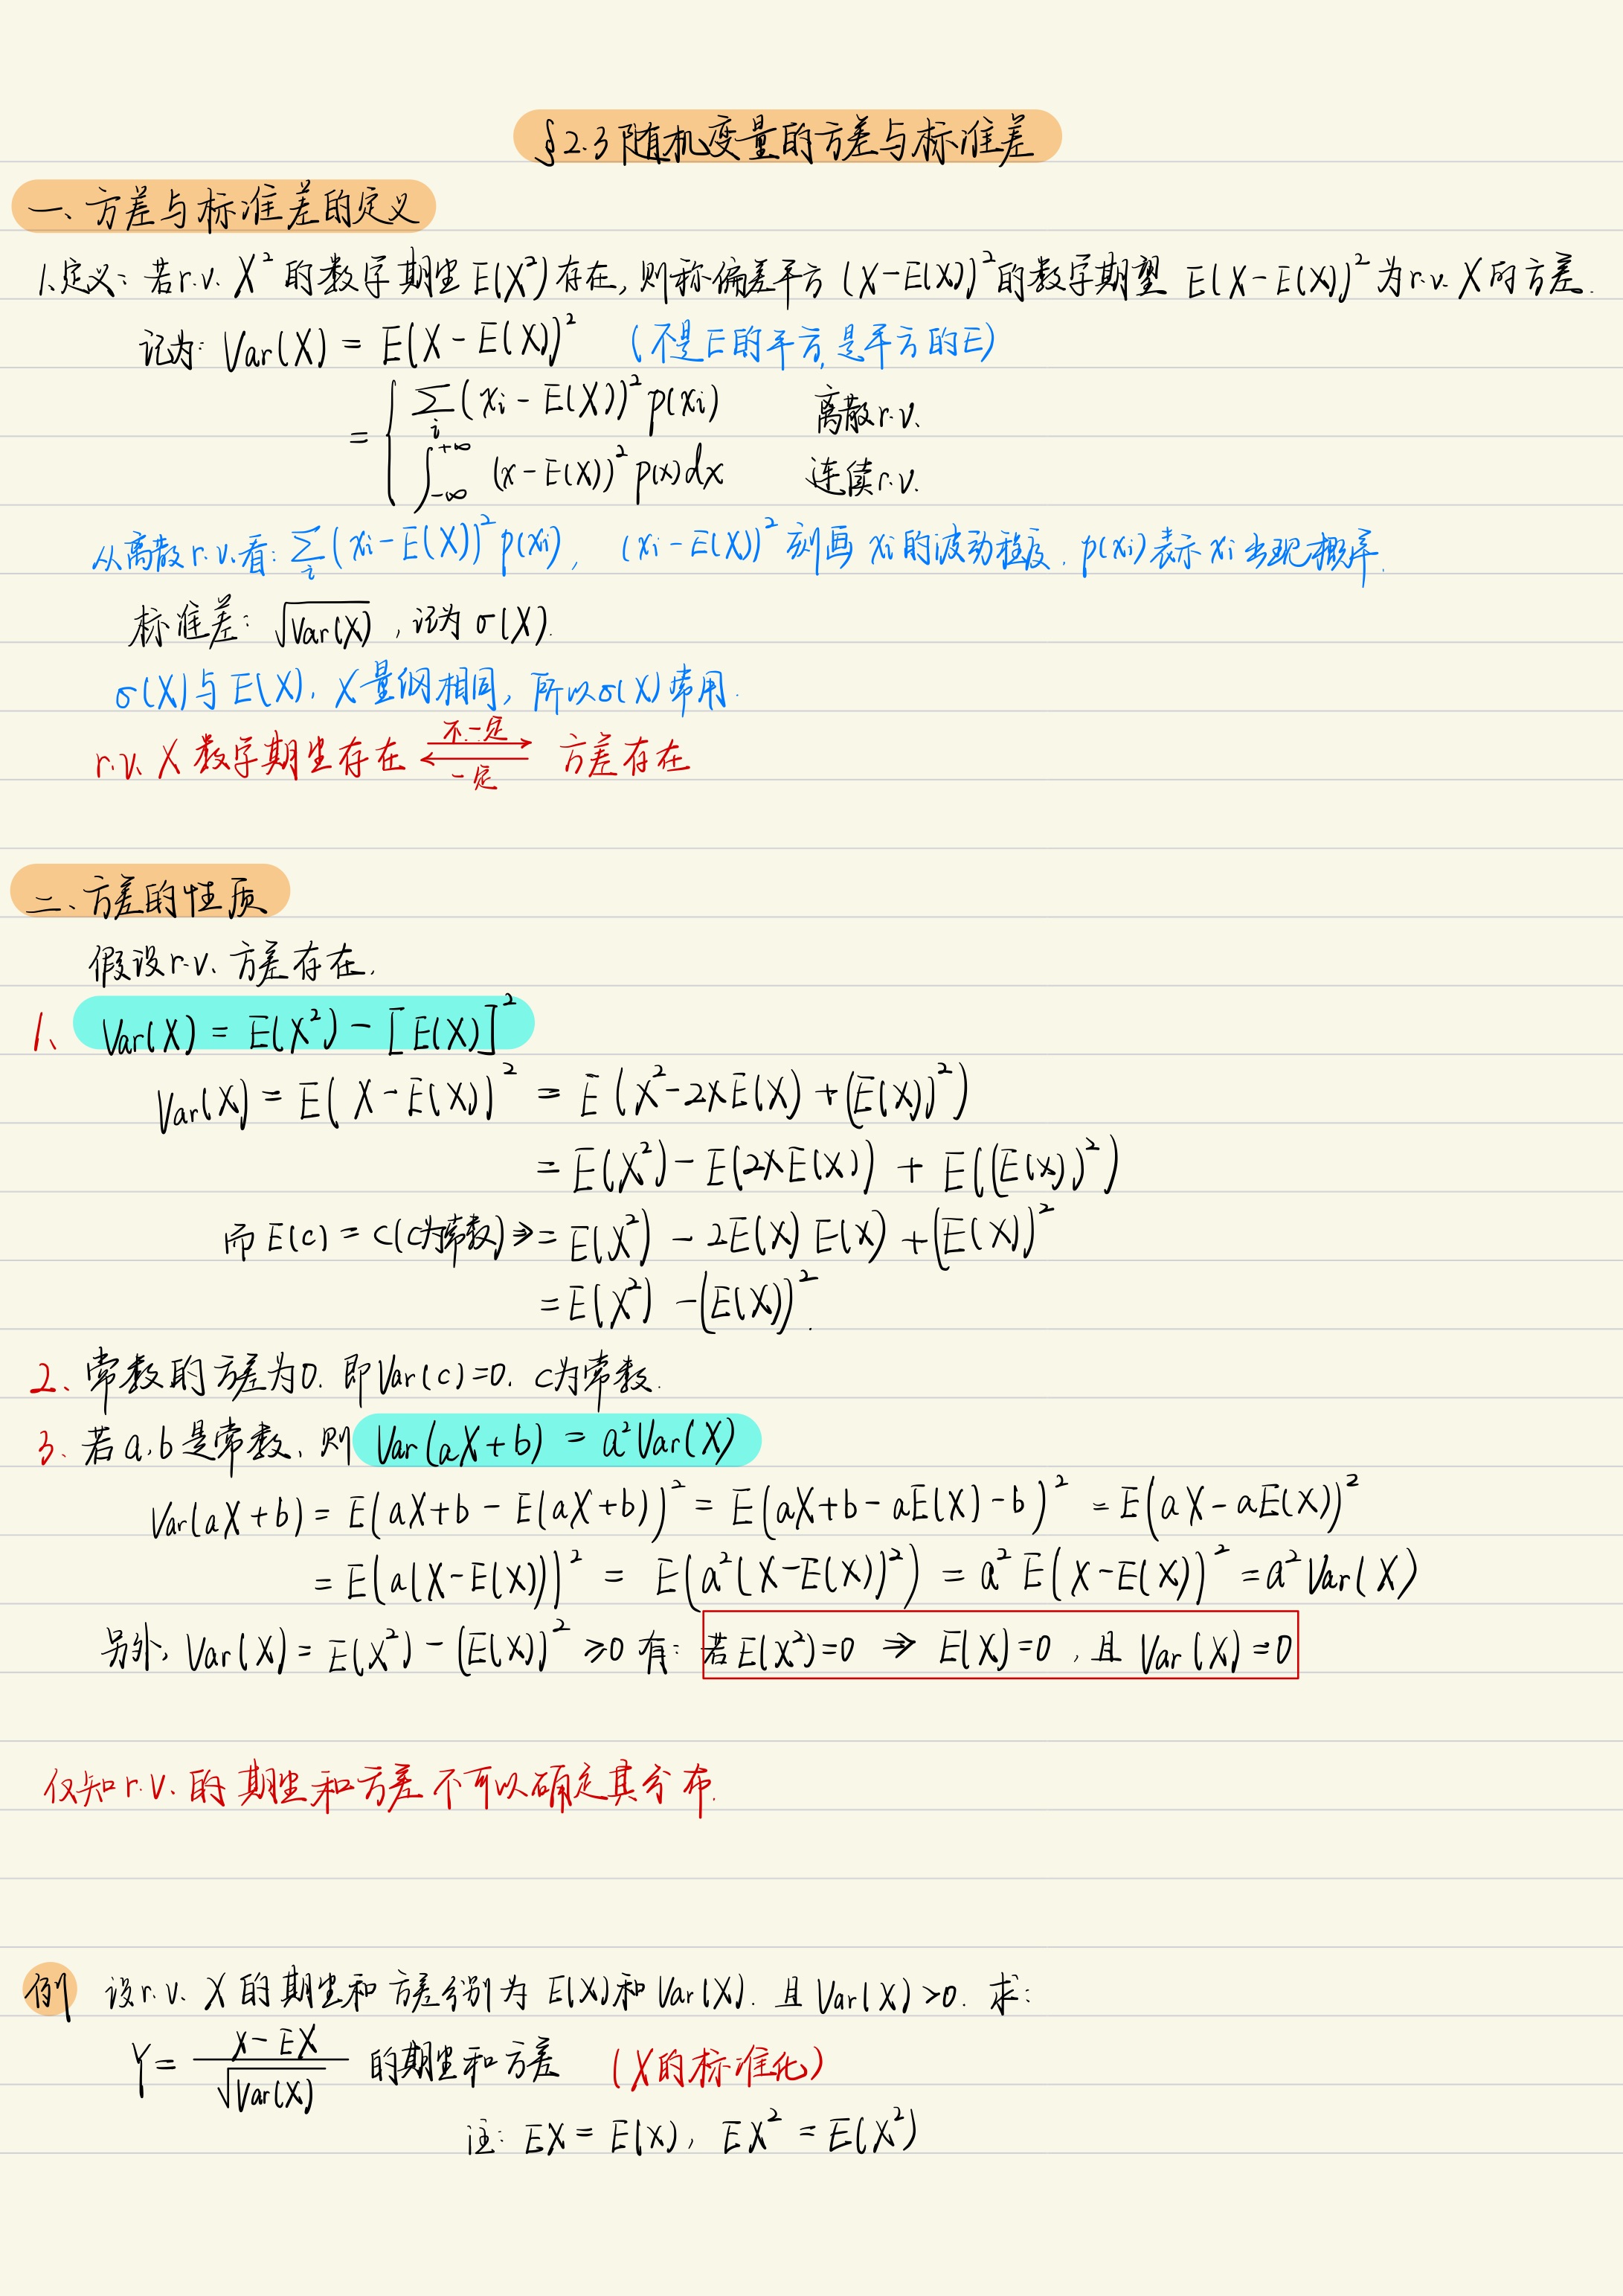 §2.3 随机变量的方差与标准差
一、方差与标准差的定义
1.定义：若r.v. X² 的数学期望 E(X²)存在, 则称偏差平方 (X-E(X))²的数学期望 E(X-E(X))²为r.v. X的方差.
记为: Var(X) = E(X-E(X))² (不是E的平方,是平方的E)
= { ∑ᵢ(xᵢ-E(X))²p(xᵢ) 离散r.v.
∫₋∞⁺∞ (x-E(X))²p(x)dx 连续r.v.
从离散r.v.看: ∑ᵢ(xᵢ-E(X))²p(xᵢ), (xᵢ-E(X))²刻画 xᵢ的波动程度. p(xᵢ)表示xᵢ出现概率.
标准差: √Var(X) , 记为 σ(X).
σ(X)与E(X), X量纲相同, 所以σ(X)常用.
r.v. X 数学期望存在 不一定→ ←一定 方差存在
二、方差的性质
假设r.v. 方差存在.
1、 Var(X) = E(X²) - [E(X)]²
Var(X) = E(X-E(X))² = E(X²-2XE(X)+(E(X))²)
= E(X²) - E(2XE(X)) + E((E(X))²)
而 E(c) = c(c为常数)⇒ = E(X²) - 2E(X)E(X) + (E(X))²
= E(X²) - (E(X))².
2、常数的方差为0. 即Var(c)=0. c为常数.
3、若a,b是常数, 则 Var(aX+b) = a²Var(X)
Var(aX+b) = E(aX+b-E(aX+b))² = E(aX+b-aE(X)-b)² = E(aX-aE(X))²
= E(a(X-E(X)))² = E(a²(X-E(X))²) = a²E(X-E(X))² = a²Var(X)
另外, Var(X) = E(X²)-(E(X))² ≥0 有: 若E(X²)=0 ⇒ E(X)=0 , 且 Var(X)=0
仅知r.v. 的期望和方差不可以确定其分布.
例 设r.v. X 的期望和方差分别为 E(X)和Var(X). 且Var(X)>0. 求:
Y = (X-EX)/√Var(X) 的期望和方差 (X的标准化)
注: EX = E(X), EX² = E(X²)